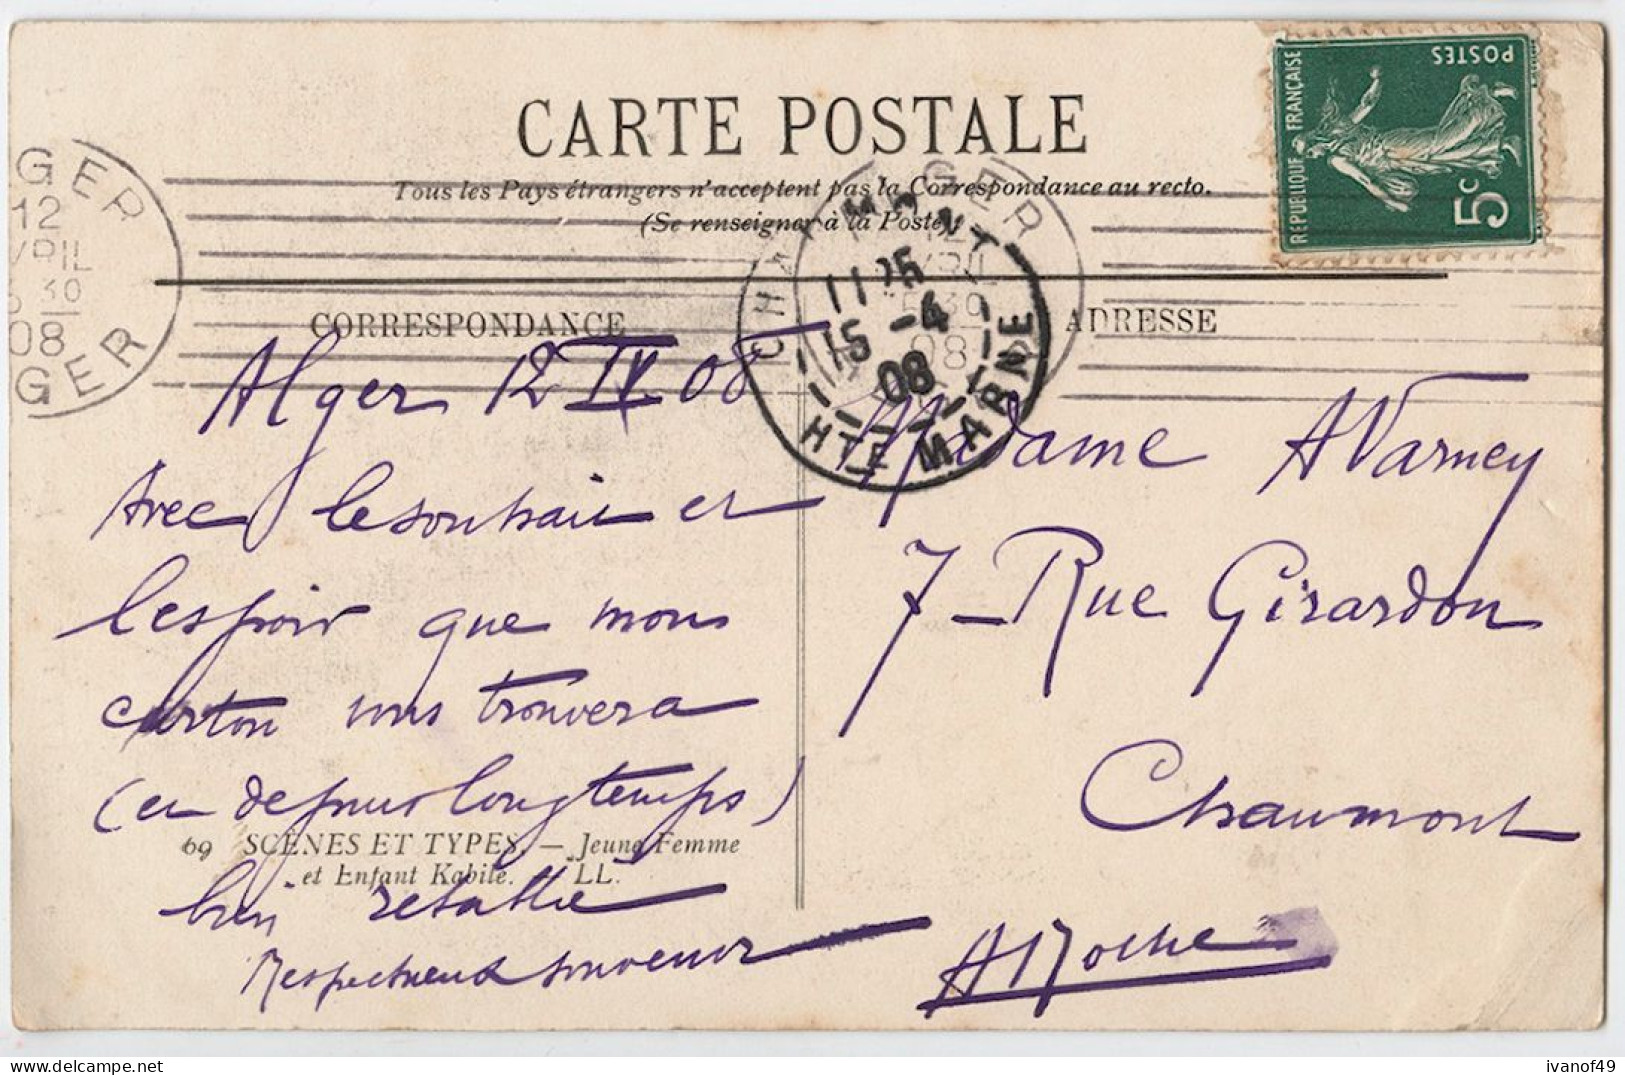 CARTE POSTALE
Tous les Pays étrangers n'acceptent pas la Correspondance au recto.
(Se renseigner à la Poste)
CORRESPONDANCE
ADRESSE
REPUBLIQUE FRANÇAISE
POSTES
5c
ALGER
12
AVRIL
30
08
ALGER
CHAUMONT
11 25
15 -4
08
HTE MARNE
Alger 12 IV 08
Avec le souhait et
l'espoir que mon
carton vous trouvera
(en depuis longtemps)
bien retablie
Respectueux souvenir
ARoche
Madame A Varney
7 - Rue Girardon
Chaumont
69 SCÈNES ET TYPES. — Jeune Femme
et Enfant Kabile. LL.
ivanof49